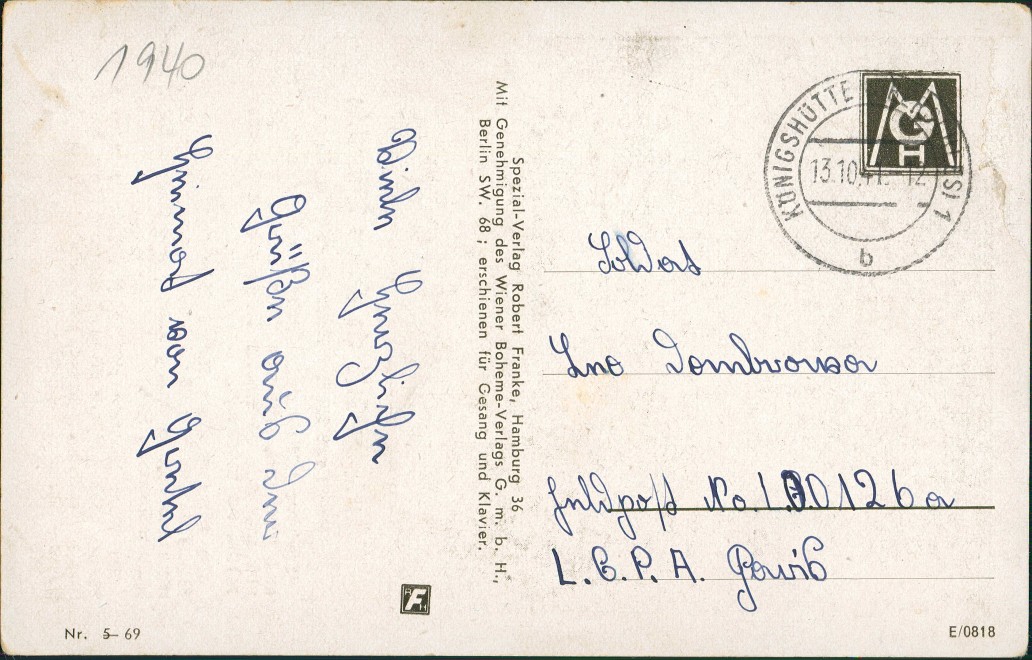 1940
Viele Herzliche
Grüße aus der
Heimat von
Spezial-Verlag Robert Franke, Hamburg 36
Mit Genehmigung des Wiener Boheme-Verlags G. m. b. H.,
Berlin SW. 68; erschienen für Gesang und Klavier.
KÖNIGSHÜTTE
1
b
MGH
Soldat
Leo
Feldpost No.
L.G.P.A. Paris
Nr. 5-69
E/0818